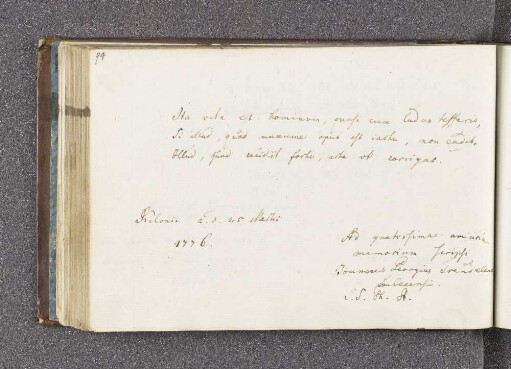 94
Ita vita est hominum, quasi cum ludas tesseris,
Si illud, quod maxume opus est iactu, non cadit,
Illud, quod cecidit forte, arte ut corrigas.
Kilonii a. d. 25 Martii
1776.
Ad gratissimae amicitiae
memoriam scripsi
Joannes Georgius
S. S. Th. St.